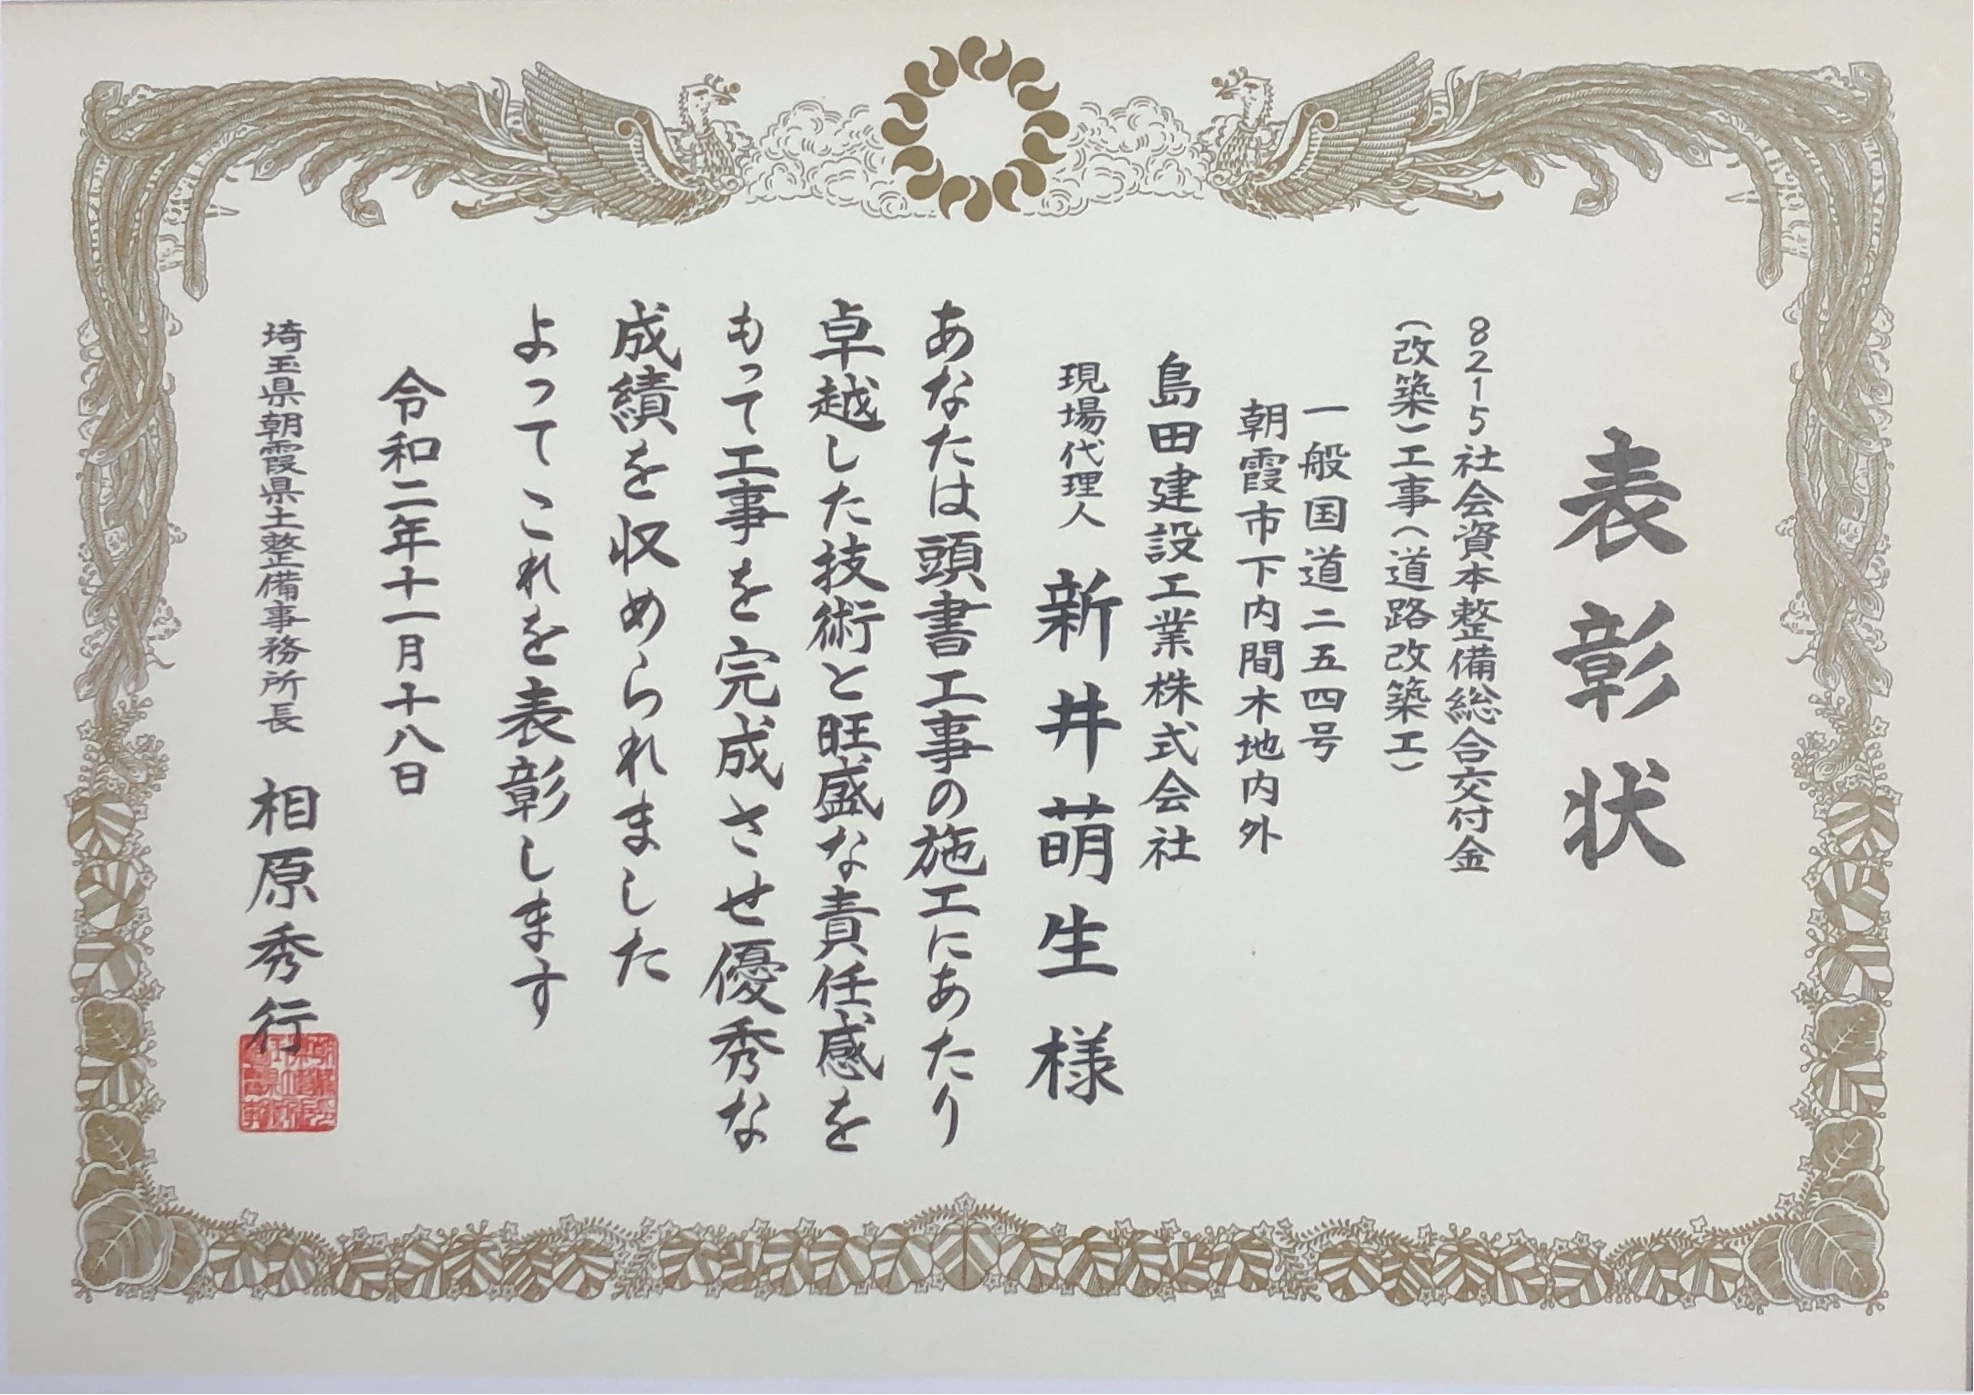 表彰状
8215社会資本整備総合交付金
（改築）工事（道路改築工）
一般国道二五四号
朝霞市下内間木地内外
島田建設工業株式会社
現場代理人 新井萌生様
あなたは頭書工事の施工にあたり
卓越した技術と旺盛な責任感を
もって工事を完成させ優秀な
成績を収められました
よってこれを表彰します
令和二年十一月十八日
埼玉県朝霞県土整備事務所長 相原秀行